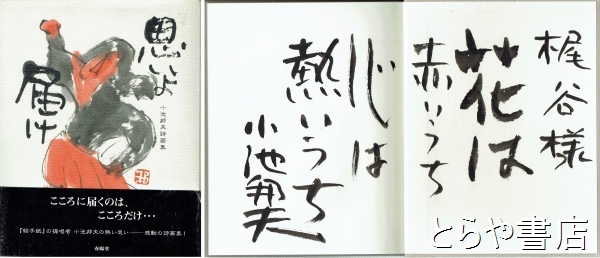 思いよ
届け
小池邦夫詩画集
こころに届くのは、
こころだけ・・・
『絵手紙』の提唱者 小池邦夫の熱い思い――感動の詩画集！
春陽堂
梶谷様
花は
赤いうち
心は
熱いうち
小池邦夫
とらや書店